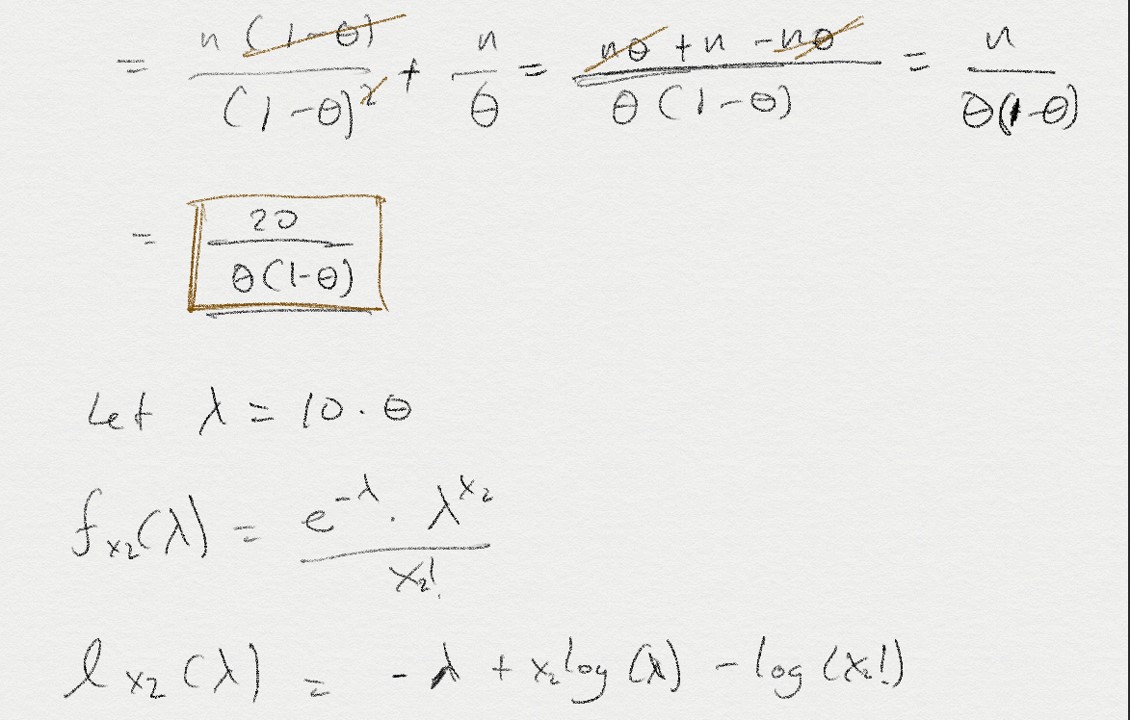 = n(1-θ) / (1-θ)² + n/θ = nθ + n - nθ / θ(1-θ) = n / θ(1-θ)
= 20 / θ(1-θ)
Let λ = 10 · θ
f_x₂(λ) = e^-λ · λ^x₂ / x₂!
l_x₂(λ) = -λ + x₂log(λ) - log(x₂!)